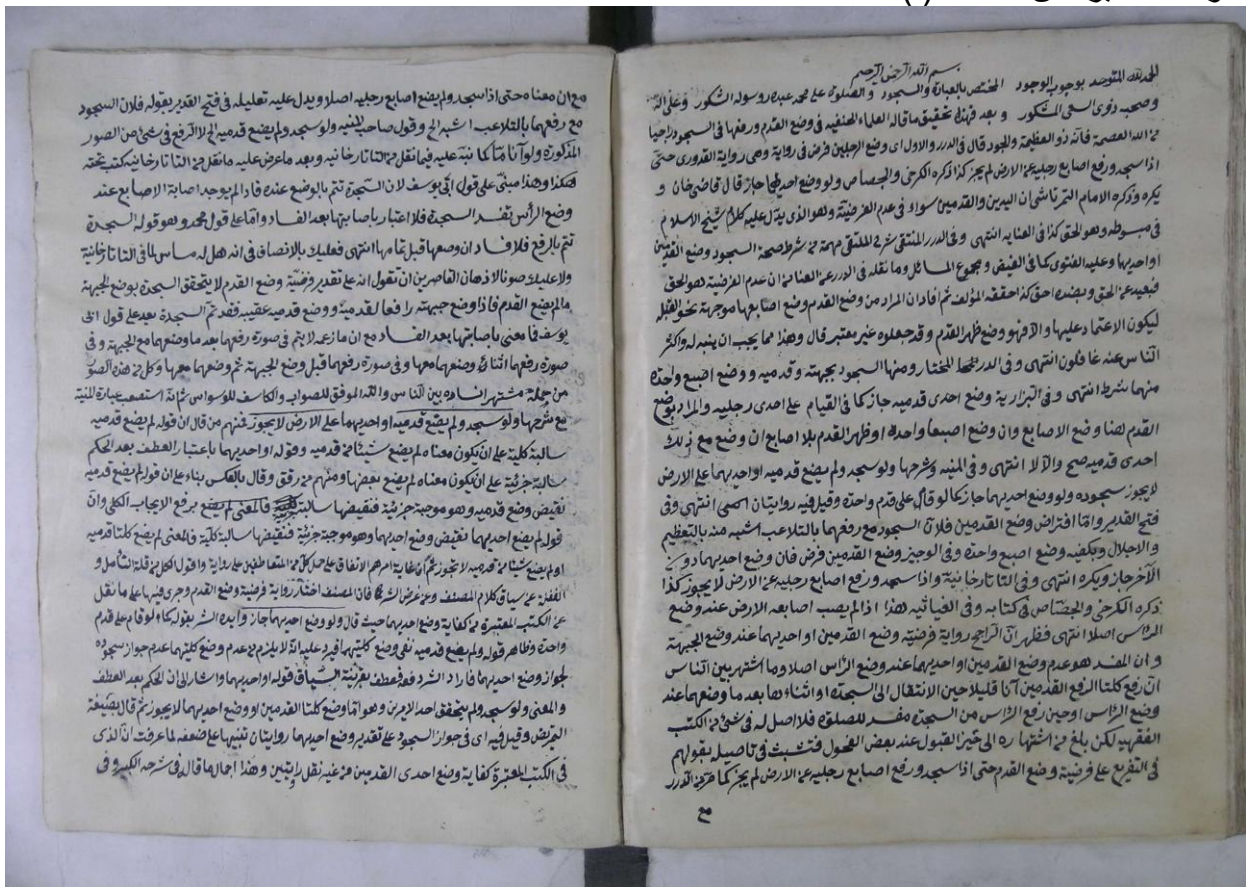 بسم الله الرحمن الرحيم
الحمد لله المتوحد بوجوب الوجود المختص بالعبادة والسجود والصلوة على محمد عبده ورسوله الشكور وعلى آله
وصحبه ذوى السعى المشكور وبعد فهذا تحقيق ما قاله العلماء الحنفيه فى وضع القدم ورفعها فى السجود راجيا
من الله العصمة فانه ذو العظمة والجود قال فى الدرر والاول اى وضع الرجلين فرض فى رواية وهى رواية القدورى حتى
اذا سجد ورفع اصابع رجليه عن الارض لم يجز كذا ذكره الكرخى والجصاص ولو وضع احديهما جاز قال قاضى خان و
يكره وذكره الامام التمرتاشى ان اليدين والقدمين سواء فى عدم الفرضية وهو الذى يدل عليه كلام شيخ الاسلام
فى مبسوطه وهو الحق كذا فى العنايه انتهى وفى الدرر المنتقى شرح الملتقى مهمة من شرط صحة السجود وضع القدمين
او احديهما وعليه الفتوى كما فى الفيض ومجموع المسائل وما نقله فى الدرر عن العناية من ان عدم الفرضية هو الحق
فبعيد عن الحق وبضده احق كذا حققه المؤلف ثم افاد ان المراد من وضع القدم وضع اصابعها موجهة نحو القبله
ليكون الاعتماد عليها والا فهو وضع ظهر القدم وقد جعلوه غير معتبر قال وهذا مما يجب ان ينبه له واكثر
الناس عنه غافلون انتهى وفى الدر المختار ومنها السجود بجبهته وقدميه ووضع اصبع واحدة
منهما شرط انتهى وفى البزازية وضع احدى قدميه جاز كما فى القيام على احدى رجليه والمراد بوضع
القدم هنا وضع الاصابع وان وضع اصبعا واحدة او ظهر القدم بلا اصابع ان وضع مع ذلك
احدى قدميه صح والا لا انتهى وفى المنيه وشرحها ولو سجد ولم يضع قدميه او احديهما على الارض
لا يجوز سجوده ولو وضع احديهما جاز كما لو قام على قدم واحدة وقيل فيه روايتان انتهى وفى
فتح القدير واما افتراض وضع القدمين فلان السجود مع رفعهما بالتلاعب اشبه منه بالتعظيم
والاجلال ويكفيه وضع اصبع واحدة وفى الوجيز وضع القدمين فرض فان وضع احديهما دون
الآخر جاز ويكره انتهى وفى التاتارخانية واذا سجد ورفع اصابع رجليه عن الارض لا يجوز كذا
ذكره الكرخى والجصاص فى كتابه وفى الغياثيه هذا اذا لم يصب اصابعه الارض عند وضع
الرأس اصلا انتهى فظهر ان الراجح رواية فرضية وضع القدمين او احديهما عند وضع الجبهة
وان المفسد هو عدم وضع القدمين او احديهما عند وضع الرأس اصلا وما اشتهر بين الناس
ان رفع كلتا القدمين آنا قليلا حين الانتقال الى السجدة او اثناءها بعد ما وضعهما عند
وضع الرأس او حين رفع الرأس من السجدة مفسد للصلوة فلا اصل له فى شئ من الكتب
الفقهيه لكن بلغ من اشتهاره الى حيز القبول عند بعض الفحول فتشبث فى تاصيله بقولهم
فى التفريع على فرضية وضع القدم حتى اذا سجد ورفع اصابع رجليه عن الارض لم يجز كما مر من الدرر
مع
مع ان معناه حتى اذا سجد ولم يضع اصابع رجليه اصلا ويدل عليه تعليله فى فتح القدير بقوله فلان السجود
مع رفعهما بالتلاعب اشبه الخ وقول صاحب المنيه ولو سجد ولم يضع قدميه الخ لا الرفع فى شئ من الصور
المذكورة ولو آنا ما كما نبه عليه فيما نقل من التاتارخانيه وبعد ما عرض عليه ما نقل من التاتارخانيه كتب تحته
هكذا وهذا مبنى على قول ابى يوسف لان السجدة تتم بالوضع عنده فاذا لم يوجد اصابة الاصابع عند
وضع الرأس تفسد السجدة فلا اعتبار باصابتها بعد الفساد واما على قول محمد وهو قوله السجدة
تتم بالرفع فلا فساد ان وضعها قبل تمامها انتهى فعليك بالانصاف فى انه هل له مساس لما فى التاتارخانية
ولا عليك صونا لاذهان القاصرين ان تقول انه على تقدير فرضية وضع القدم لا يتحقق السجدة بوضع الجبهة
ما لم يضع القدم فاذا وضع جبهته رافعا لقدميه ووضع قدميه عقيبه فقد تم السجدة بعد على قول ابى
يوسف فما معنى باصابتها بعد الفساد مع ان ما زعمه لا يتم فى صورة رفعهما بعد ما وضعهما مع الجبهة وفى
صورة رفعهما اثناء وضعهما معها وفى صورة رفعهما قبل وضع الجبهة ثم وضعهما معها وكل من هذه الصور
من جملة مشتهر افساده بين الناس والله الموفق للصواب والكاشف للوسواس ثم انه استصعب عبارة المنية
مع شرحها ولو سجد ولم يضع قدميه او احديهما على الارض لا يجوز فمنهم من قال ان قوله لم يضع قدميه
سالبة كلية على ان يكون معناه لم يضع شيئا من قدميه وقوله او احديهما باعتبار العطف بعد الحكم
سالبة جزئية على ان يكون معناه لم يضع بعضها ومنهم من دقق وقال بالعكس بناء على ان قوله لم يضع قدميه
نقيض وضع قدميه وهو موجبة جزئية فنقيضها سالبة فالمعنى لم يضع برفع الايجاب الكلى وان
قوله لم يضع احديهما نقيض وضع احديهما وهو موجبة جزئية فنقيضها سالبة كلية فالمعنى لم يضع كلتا قدميه
او لم يضع شيئا من قدميه لا يجوز ثم ان غاية امرهم الاتفاق على حمل كل من المتعاطفين على رواية واقول الكل من قلة التأمل و
الغفلة عن سياق كلام المصنف وعن غرض الشارح فان المصنف اختار رواية فرضية وضع القدم وجرى فيها على ما نقل
عن الكتب المعتبرة من كفاية وضع احديهما حيث قال ولو وضع احديهما جاز وايده الشر بقوله كما لو قام على قدم
واحدة وظاهر قوله ولم يضع قدميه نفى وضع كلتيهما فيرد عليه انه لا يلزم من عدم وضع كلتيهما عدم جواز سجوده
لجواز وضع احديهما فاراد الشر دفعه فعطف بقرينة السياق قوله او احديهما واشار الى ان الحكم بعد العطف
والمعنى ولو سجد ولم يتحقق احد الامرين وهو اما وضع كلتا القدمين او وضع احديهما لا يجوز ثم قال بصيغة
التمريض وقيل فيه اى فى جواز السجود على تقدير وضع احديهما روايتان تنبيها على ضعفه لما عرفت ان الذى
فى الكتب المعتبرة كفاية وضع احدى القدمين من غير نقل روايتين وهذا اجمال ما قال فى شرحه الكبير وفى